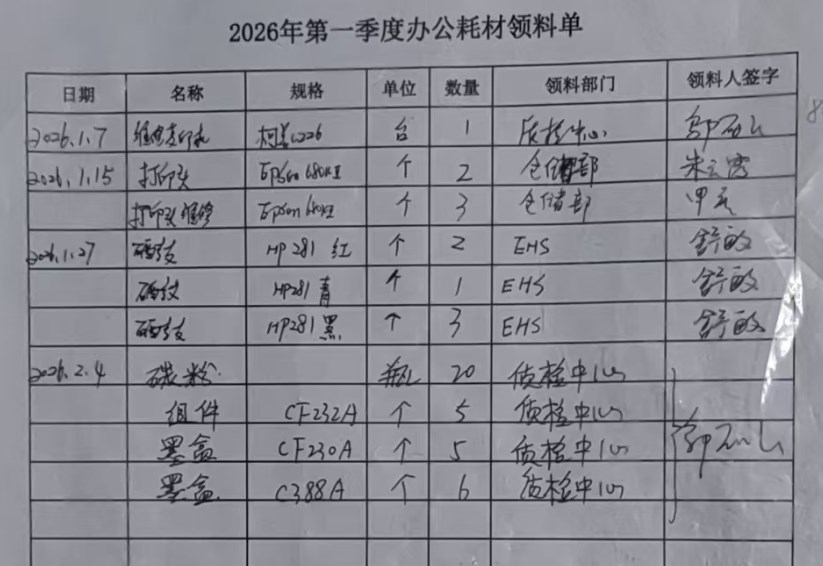 2026年第一季度办公耗材领料单
日期 名称 规格 单位 数量 领料部门 领料人签字
2026.1.7 维修打印机 台 1 质检中心
2026.1.15 打印头 Epson 680KII 个 2 仓储部 朱云霞
打印头维修 Epson 680KII 个 3 仓储部
2026.1.27 硒鼓 HP281 红 个 2 EHS 舒敏
硒鼓 HP281 青 个 1 EHS 舒敏
硒鼓 HP281 黑 个 3 EHS 舒敏
2026.2.4 碳粉 瓶 20 质检中心
组件 CF232A 个 5 质检中心
墨盒 CF230A 个 5 质检中心
墨盒 C388A 个 6 质检中心